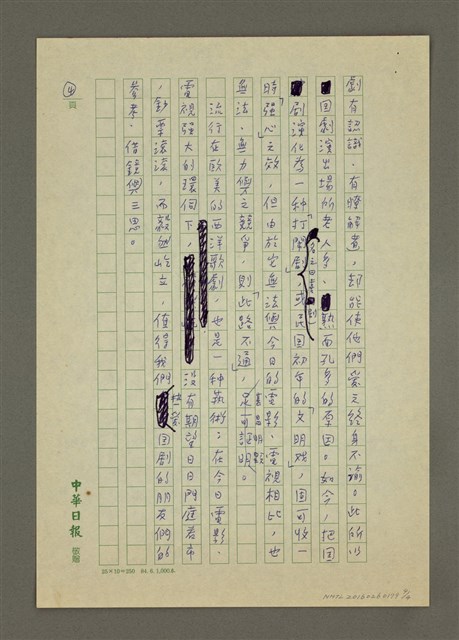 劇有認識、有瞭解者，却能使他們愛之終身不渝。此所以
國劇演出場所老人多、熟面孔多的原因。如今，把國
劇演化為一種「打鬧劇」或民國初年的「文明戏」，固可收一
時「強心」之效，但由於它無法與今日的電影、電視相比，也
無法、無力與之競爭，則「此路不通」，是可證明。
流行在欧美的西洋歌劇，也是一种芸術；在今日電影、
電視強大的環伺下，沒有期望日日門庭若市
，鈔票滾滾，而毅然屹立，值得我們熱愛国剧的朋友們的
參考、借鏡與三思。
④
頁
中華日報
25×10=250 84.6.1,000本
NMTL20160260179